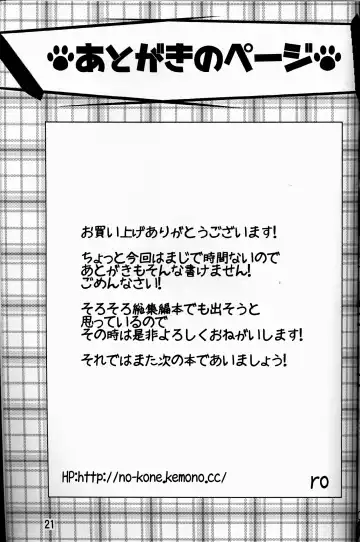 あとがきのページ
お買い上げありがとうございます!
ちょっと今回はまじで時間ないので
あとがきもそんな書けません!
ごめんなさい!
そろそろ総集編本でも出そうと
思っているので
その時は是非よろしくおねがいします!
それではまた次の本であいましょう!
HP:http://no-kone.kemono.cc/
ro
21